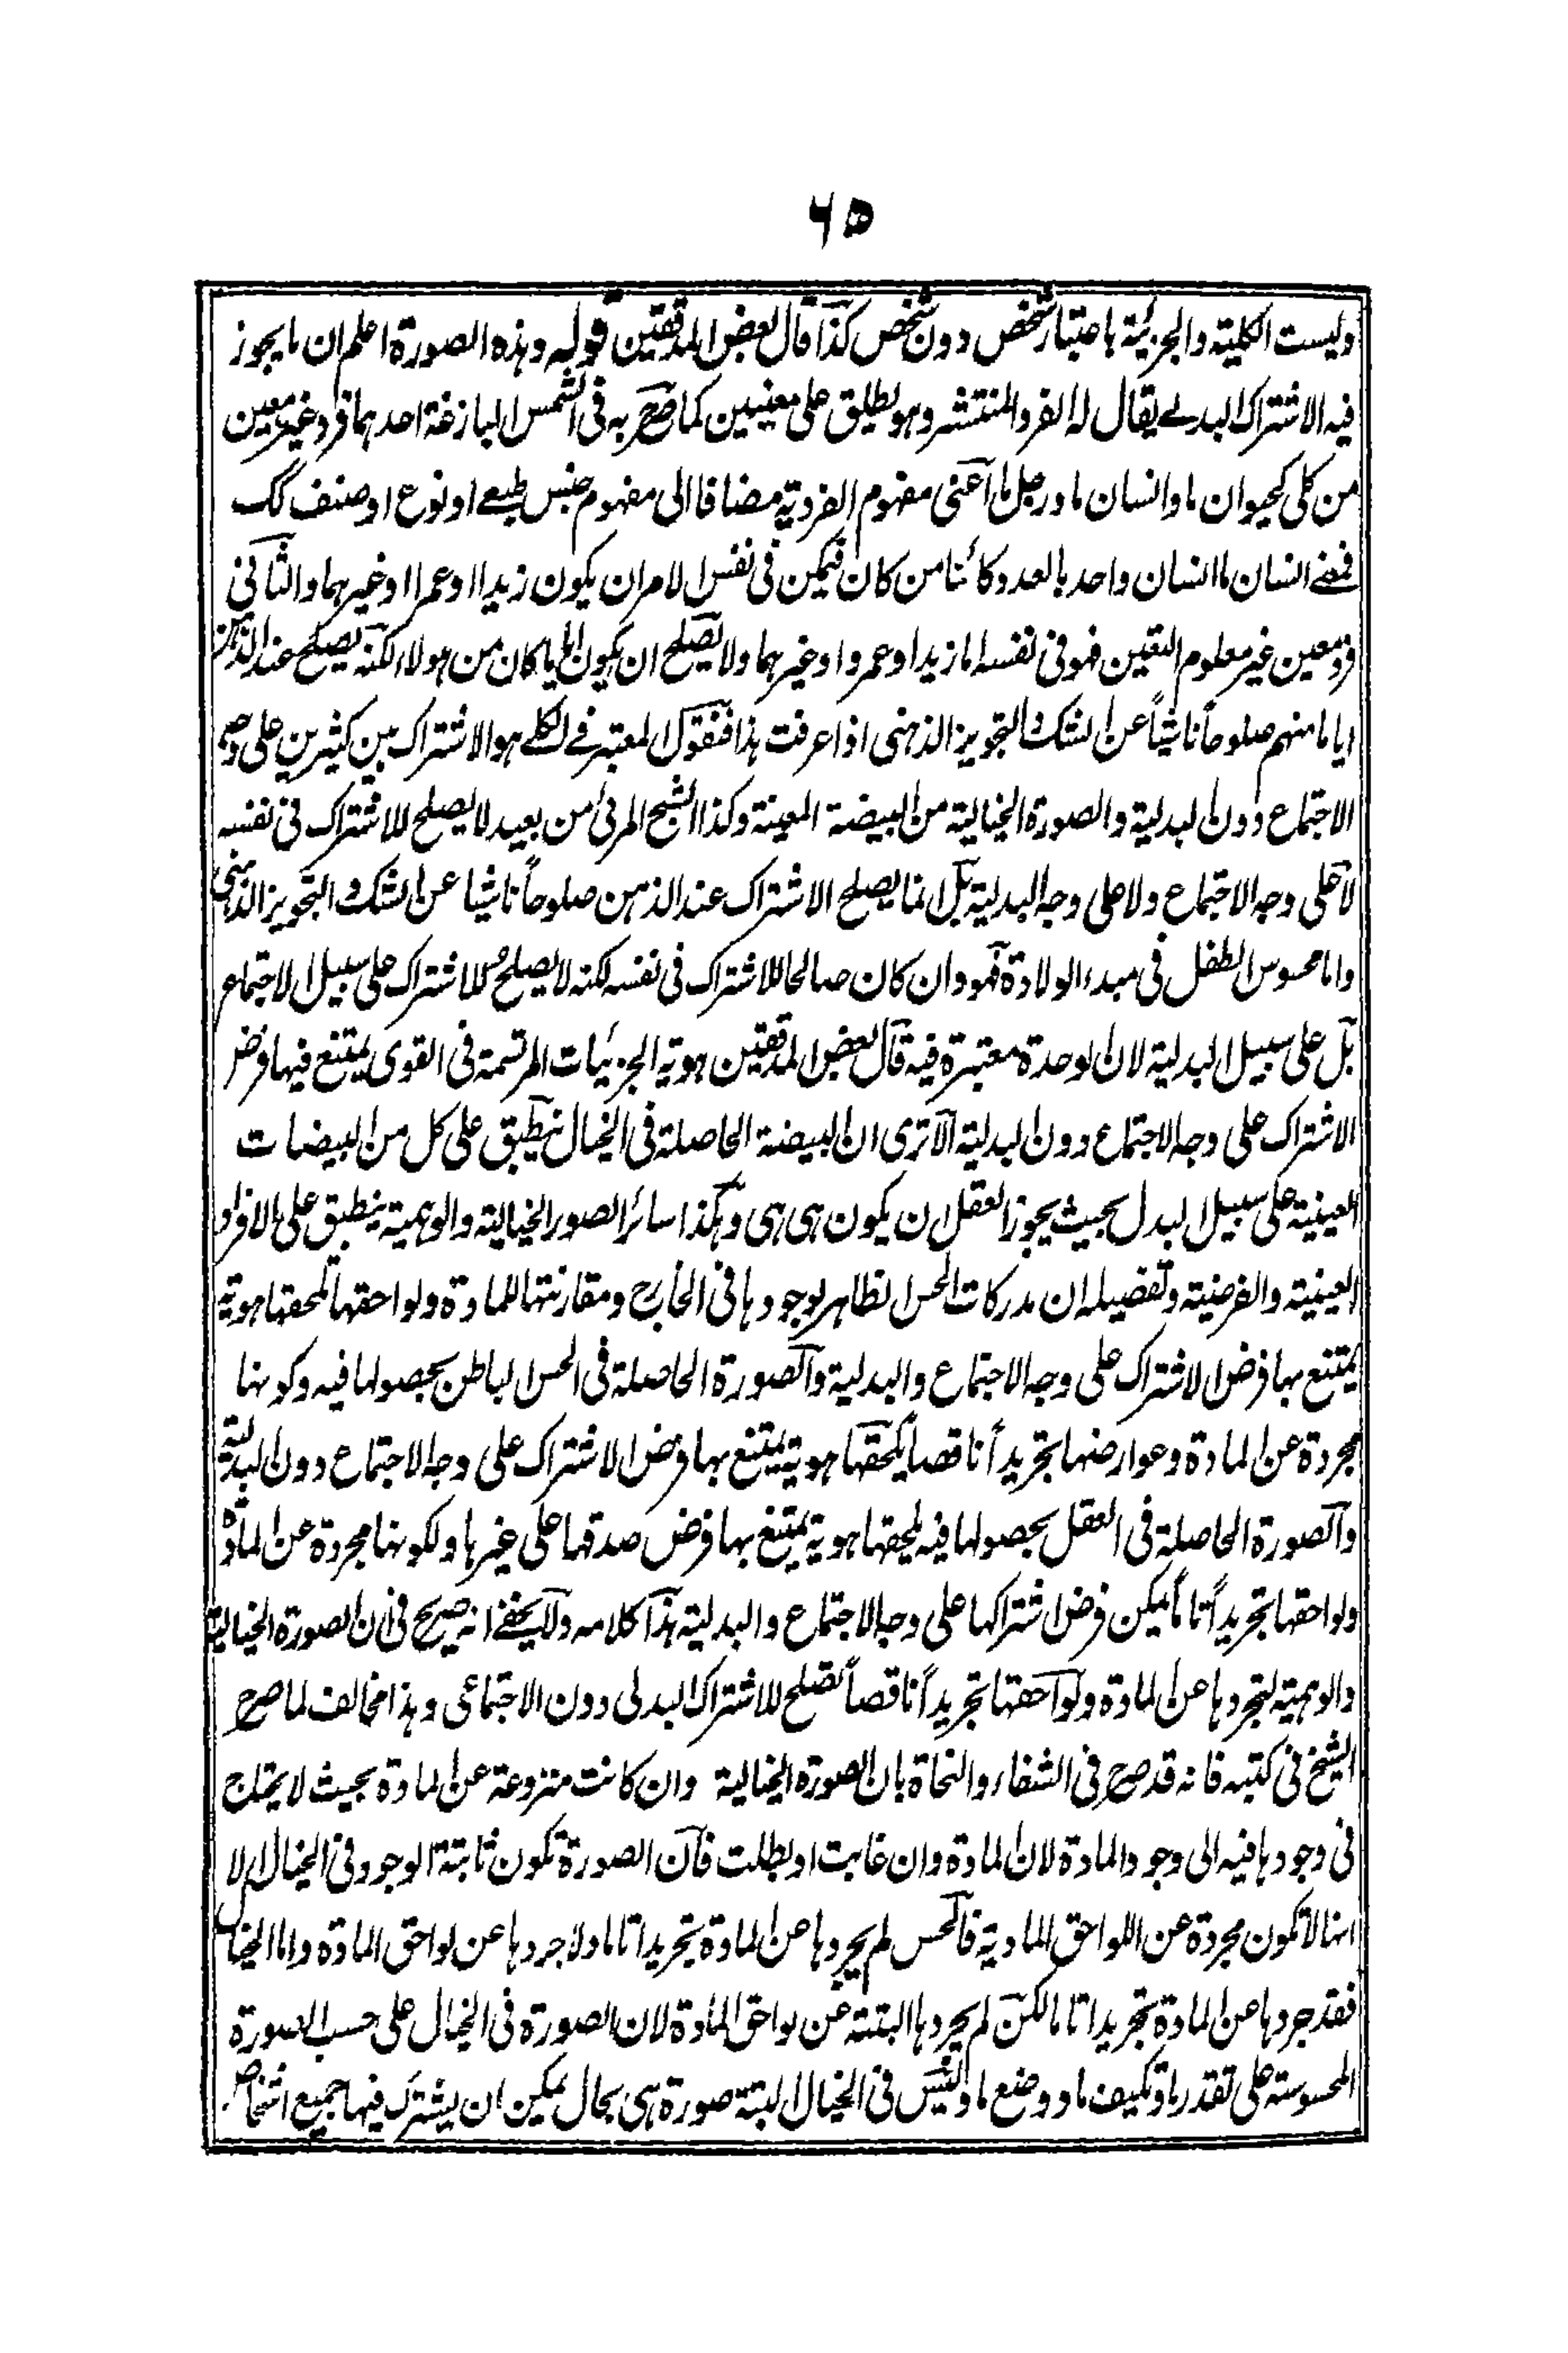 ٦٥
وليست الكلية والجزئية باعتبار شخص دون شخص كذا قال بعض المدققين قوله وهذه الصورة اعلم ان ما يجوز
فيه الاشتراك البدلے يقال له الفرد المنتشر وهو يطلق على معنيين كما صرح به فى الشمس البازغة احدهما فرد غير معين
من كلى كحيوان ما وانسان ما ورجل ما اعنى مفهوم الفردية مضافا الى مفهوم جنس طبعے او نوع او صنف كك
فمعنے انسان ما انسان واحد بالعدد كائنا من كان فيمكن فى نفس الامر ان يكون زيدا او عمرا او غيرهما والثانى
فرد معين غير معلوم التعين فهو فى نفسه اما زيد او عمرو او غيرهما ولا يصلح ان يكون ايا ما كان من هولاء لكنه يصلح عند الذهن
ايا ما منهم صلوحاً ناشئاً عن الشك والتجويز الذهنى اذا عرفت هذا فنقول المعتبر فے الكلے هو الاشتراك بين كثيرين على وجه
الاجتماع دون البدلية والصورة الخيالية من البيضة المعينة وكذا الشبح المرئى من بعيد لا يصلح للاشتراك فى نفسه
لا على وجه الاجتماع ولا على وجه البدلية بل انما يصلح الاشتراك عند الذهن صلوحاً ناشيا عن الشك والتجويز الذهنى
واما محسوس الطفل فى مبدء الولادة فهو وان كان صالحا للاشتراك فى نفسه لكنه لا يصلح للاشتراك على سبيل الاجتماع
بل على سبيل البدلية لان الوحدة معتبرة فيه قال بعض المدققين هوية الجزئيات المرتسمة فى القوى يمتنع فيها فرض
الاشتراك على وجه الاجتماع دون البدلية الا ترى ان البيضة الحاصلة فى الخيال ينطبق على كل من البيضات
العينية على سبيل البدل بحيث يجوز العقل ان يكون هى هى وهكذا سائر الصور الخيالية والوهمية ينطبق على الافراد
العينية والفرضية وتفصيله ان مدركات الحس الظاهر لوجودها فى الخارج ومقارنتها للمادة ولواحقها تلحقها هوية
يمتنع بها فرض الاشتراك على وجه الاجتماع والبدلية والصورة الحاصلة فى الحس الباطن بحصولها فيه وكونها
مجردة عن المادة وعوارضها تجريداً ناقصا يلحقها هوية يمتنع بها فرض الاشتراك على وجه الاجتماع دون البدلية
والصورة الحاصلة فى العقل بحصولها فيه يلحقها هوية يمتنع بها فرض صدقها على غيرها ولكونها مجردة عن المادة
ولواحقها تجريداً تاماً يمكن فرض اشتراكها على وجه الاجتماع والبدلية هذا كلامه ولا يخفے انه صريح فى ان الصورة الخيالية
والوهمية لتجردها عن المادة ولواحقها تجريداً ناقصاً تصلح للاشتراك البدلى دون الاجتماعى وهذا مخالف لما صرح
الشيخ فى كتبه فانه قد صرح فى الشفاء والنجاة بان الصورة الخيالية وان كانت منزوعة عن المادة بحيث لا يحتاج
فى وجودها فيه الى وجود المادة لان المادة وان غابت او بطلت فان الصورة تكون ثابتة الوجود فى الخيال الا
انها لا تكون مجردة عن اللواحق المادية فالحس لم يجردها عن المادة تجريدا تاما ولا جردها عن لواحق المادة واما الخيال
فقد جردها عن المادة تجريدا تاما لكن لم يجردها البتة عن لواحق المادة لان الصورة فى الخيال على حسب الصورة
المحسوسة على تقدر ما وتكيف ما ووضع ما وليس فى الخيال البتة صورة هى بحال يمكن ان يشترك فيها جميع اشخاص